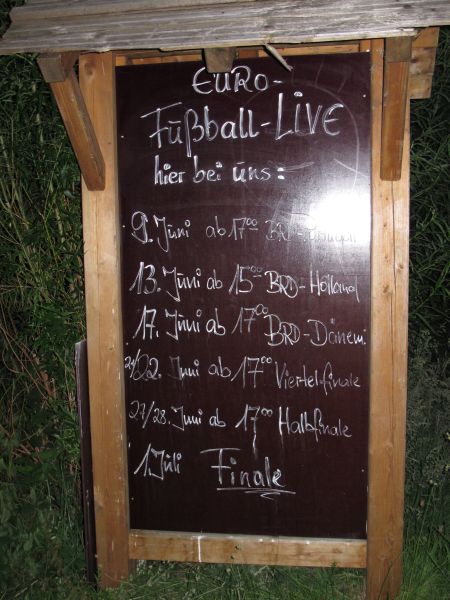 EURO-
Fußball-LIVE
hier bei uns:
9. Juni ab 17⁰⁰ BRD-
13. Juni ab 15⁰⁰ BRD-Holland
17. Juni ab 17⁰⁰ BRD-Dänem.
21/22. Juni ab 17⁰⁰ Viertelfinale
27/28. Juni ab 17⁰⁰ Halbfinale
1. Juli Finale